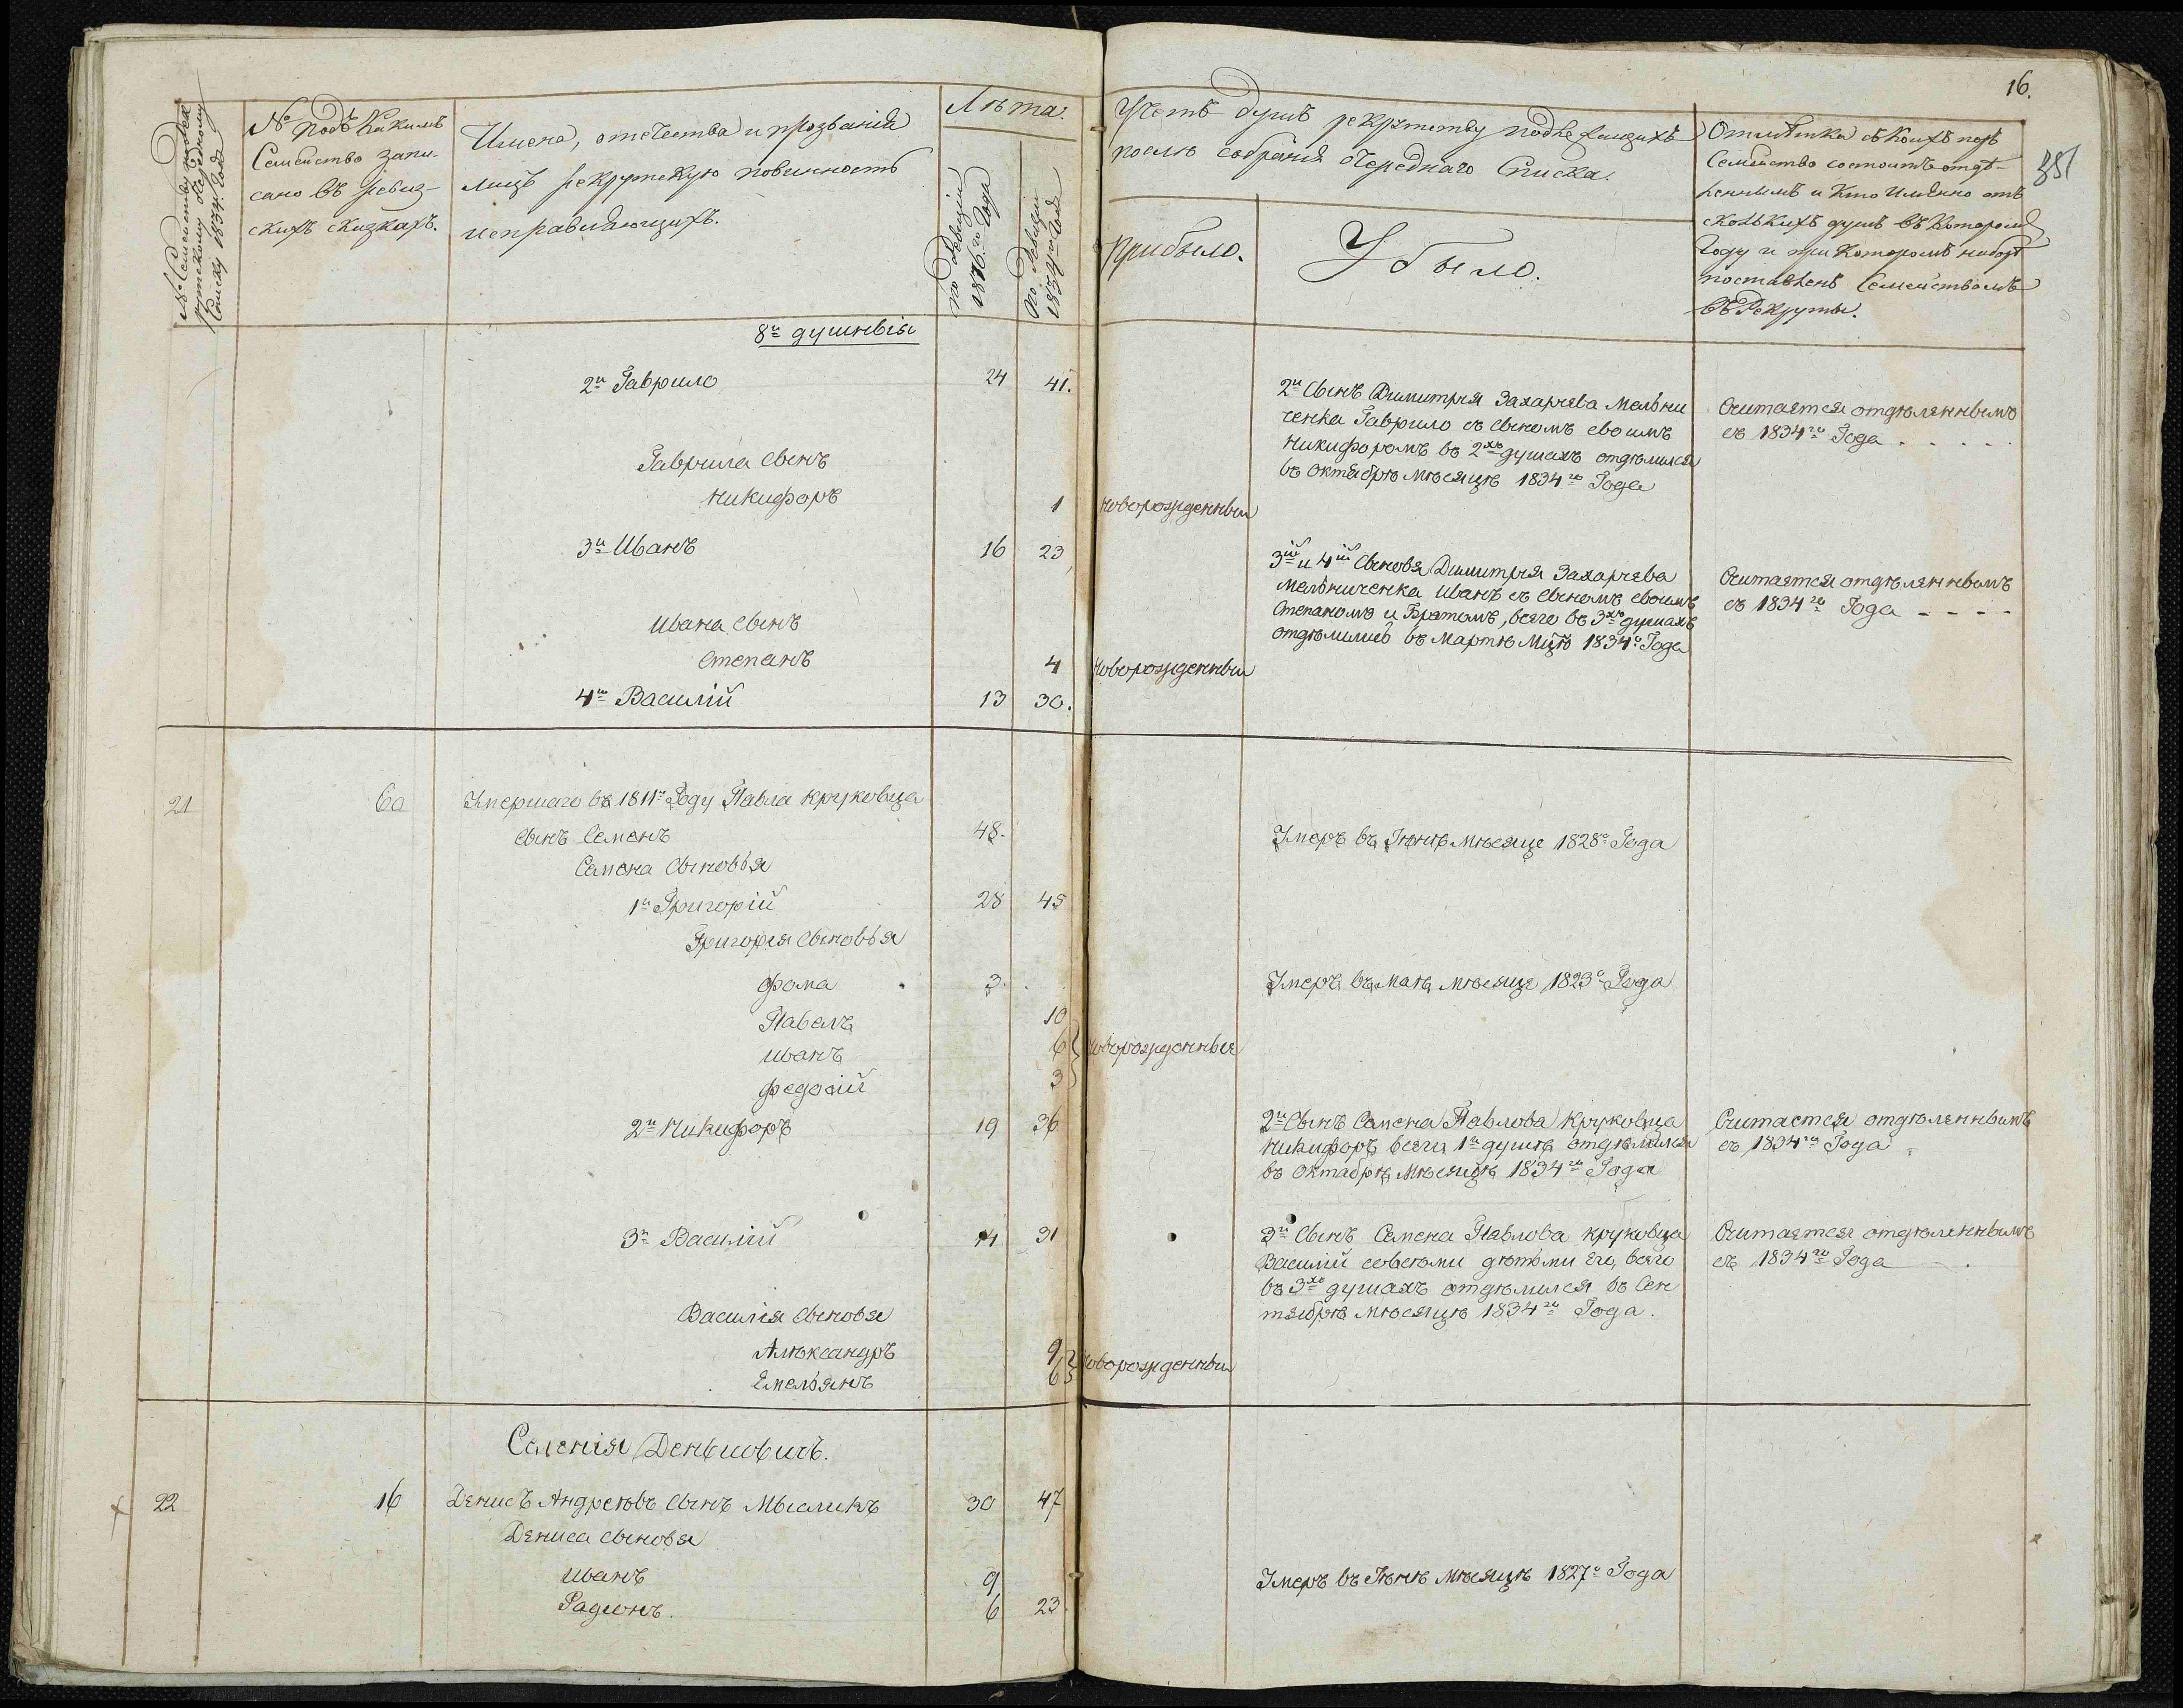 16.
351
№ Семейству по
рутскому очередному
Списку 1834 Года
№ подъ Какимъ
Семейство запи-
сано въ ревиз-
скихъ сказкахъ.
Имена, отечества и прозванія
лицъ рекрутскую повинность
исправляющихъ.
Лѣта.
по Ревизіи
1816го Года
по Ревизіи
1834го Года
Учетъ душъ рекрутству подлежащихъ
послѣ собранія очереднаго Списка.
прибыло.
Убыло.
Отмѣтка съ коихъ поръ
Семейство состоитъ отдѣ-
леннымъ и Кто Именно отъ
сколькихъ душъ въ Которомъ
Году и при Которомъ наборѣ
поставленъ Семействомъ
въ Рекруты.
8и душныя
2й Гаврило 24 41.
2й Сынъ Димитрія Захарчева Мельни
ченка Гаврило съ Сыномъ своимъ
Никифоромъ въ 2хъ душахъ отдѣлился
въ Октябрѣ мѣсяцѣ 1834го Года
Считается отдѣленнымъ
съ 1834го Года . . . . .
Гаврила Сынъ
Никифоръ 1 новорожденный
3й Иванъ 16 23
3ій и 4ій Сыновя Димитрія Захарчева
Мельниченка Иванъ съ Сыномъ своимъ
Степаномъ и Братомъ, всего въ 3хъ душахъ
отдѣлились въ Мартѣ Мцѣ 1834го Года
Считается отдѣленнымъ
съ 1834го Года - - - -
Ивана Сынъ
Степанъ 4 новорожденный
4й Василій 13 30.
21 60 Умершаго въ 1811м Году Павла Круковца
Сынъ Семенъ 48. Умеръ въ Іюнѣ мѣсяце 1828го Года
Семена Сыновья
1й Григорій 28 45
Григорія Сыновья
Фома 3. Умеръ въ Маѣ мѣсяце 1823го Года
Павелъ 10
Иванъ 6 новорожденные
Федосій 3
2й Никифоръ 19 36
2й Сынъ Семена Павлова Круковца
Никифоръ всего 1й душѣ отдѣлился
въ Октябрѣ Мѣсяцѣ 1834го Года
Считается отдѣленнымъ
съ 1834го Года
3й Василій 14 31
3й Сынъ Семена Павлова Круковца
Василій совсѣми дѣтьми Его, всего
въ 3хъ душахъ отдѣлился въ Сен
тябрѣ Мѣсяцѣ 1834го Года.
Считается отдѣленнымъ
съ 1834го Года
Василія Сыновя
Алѣксандръ 9
Емельянъ 6 новорожденныи
Селенія Деньшовичъ.
22 16 Денисъ Андреѣвъ Сынъ Мысликъ 30 47
Дениса Сыновя
Иванъ 9 Умеръ въ Іюнѣ Мѣсяцѣ 1827го Года
Радионъ. 6 23.